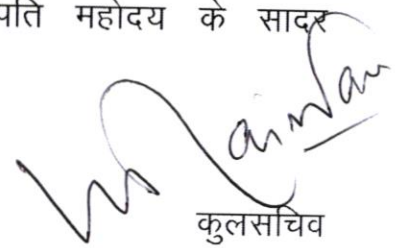 पति महोदय के सादर
कुलसचिव